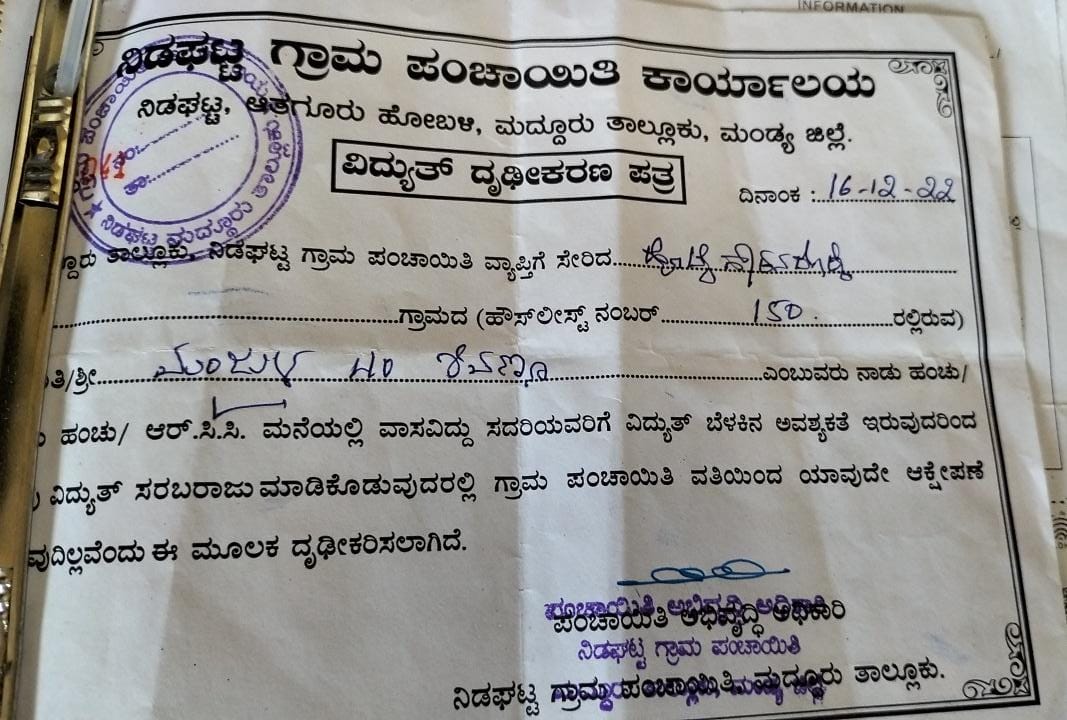 INFORMATION
ನಿಡಘಟ್ಟ ಗ್ರಾಮ ಪಂಚಾಯಿತಿ ಕಾರ್ಯಾಲಯ
ನಿಡಘಟ್ಟ, ಆತಗೂರು ಹೋಬಳಿ, ಮದ್ದೂರು ತಾಲ್ಲೂಕು, ಮಂಡ್ಯ ಜಿಲ್ಲೆ.
ವಿದ್ಯುತ್ ದೃಢೀಕರಣ ಪತ್ರ
ದಿನಾಂಕ : 16-12-22
ದ್ದೂರು ತಾಲ್ಲೂಕು, ನಿಡಘಟ್ಟ ಗ್ರಾಮ ಪಂಚಾಯಿತಿ ವ್ಯಾಪ್ತಿಗೆ ಸೇರಿದ
ಗ್ರಾಮದ (ಹೌಸ್‌ಲೀಸ್ಟ್ ನಂಬರ್ 150 ರಲ್ಲಿರುವ)
ತಿ/ಶ್ರೀ ಮಂಜುಳ
ಎಂಬುವರು ನಾಡು ಹಂಚು/
ಹಂಚು/ ಆರ್.ಸಿ.ಸಿ. ಮನೆಯಲ್ಲಿ ವಾಸವಿದ್ದು ಸದರಿಯವರಿಗೆ ವಿದ್ಯುತ್ ಬೆಳಕಿನ ಅವಶ್ಯಕತೆ ಇರುವುದರಿಂದ
ವಿದ್ಯುತ್ ಸರಬರಾಜು ಮಾಡಿಕೊಡುವುದರಲ್ಲಿ ಗ್ರಾಮ ಪಂಚಾಯಿತಿ ವತಿಯಿಂದ ಯಾವುದೇ ಆಕ್ಷೇಪಣೆ
ವುದಿಲ್ಲವೆಂದು ಈ ಮೂಲಕ ದೃಢೀಕರಿಸಲಾಗಿದೆ.
ಪಂಚಾಯಿತಿ ಅಭಿವೃದ್ಧಿ ಅಧಿಕಾರಿ
ನಿಡಘಟ್ಟ ಗ್ರಾಮ ಪಂಚಾಯಿತಿ
ನಿಡಘಟ್ಟ ಗ್ರಾಮ ಪಂಚಾಯಿತಿ, ಮದ್ದೂರು ತಾಲ್ಲೂಕು.